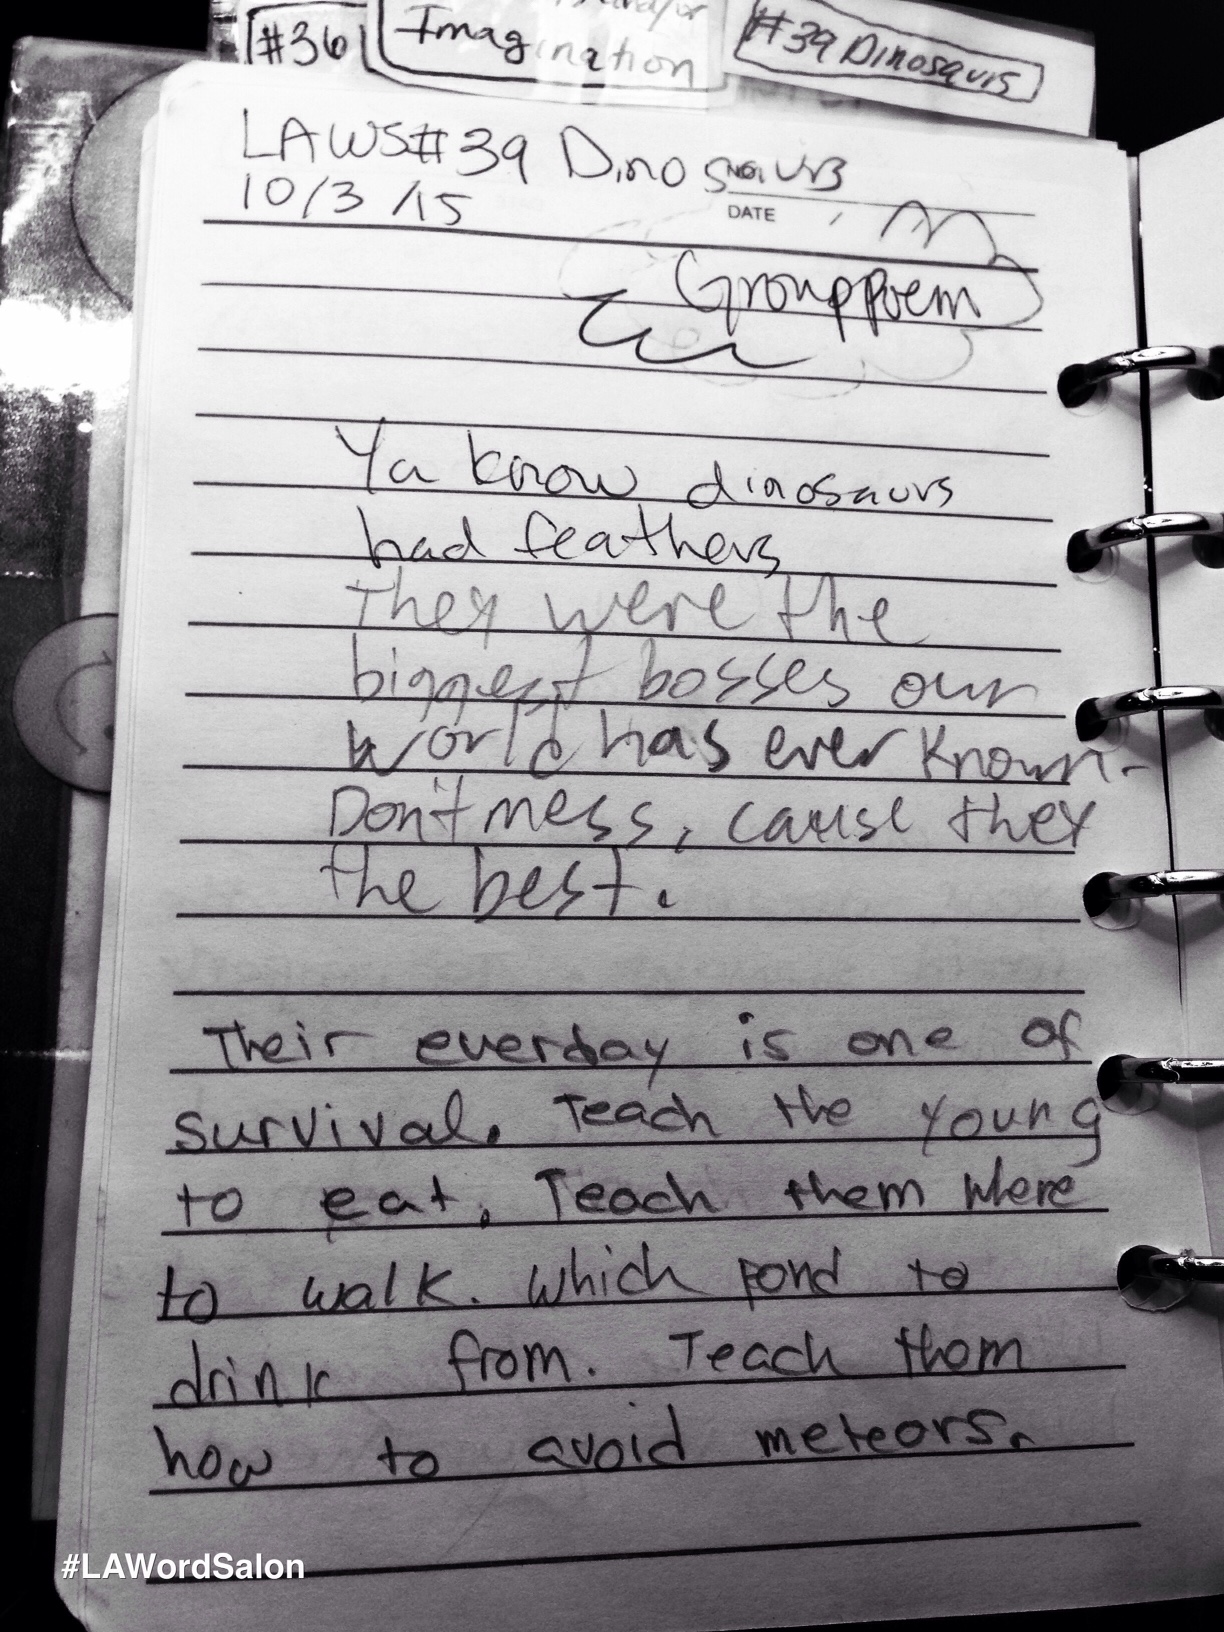 #36
Imagination
#39 Dinosaurs
LAWS#39 Dinosaurs
NO.
10/3/15
DATE
Group Poem
Ya know dinosaurs
had feathers
They were the
biggest bosses our
world has ever known-
Don't mess, cause they
the best.
Their everday is one of
survival. Teach the young
to eat. Teach them where
to walk. Which pond to
drink from. Teach them
how to avoid meteors.
#LAWordSalon